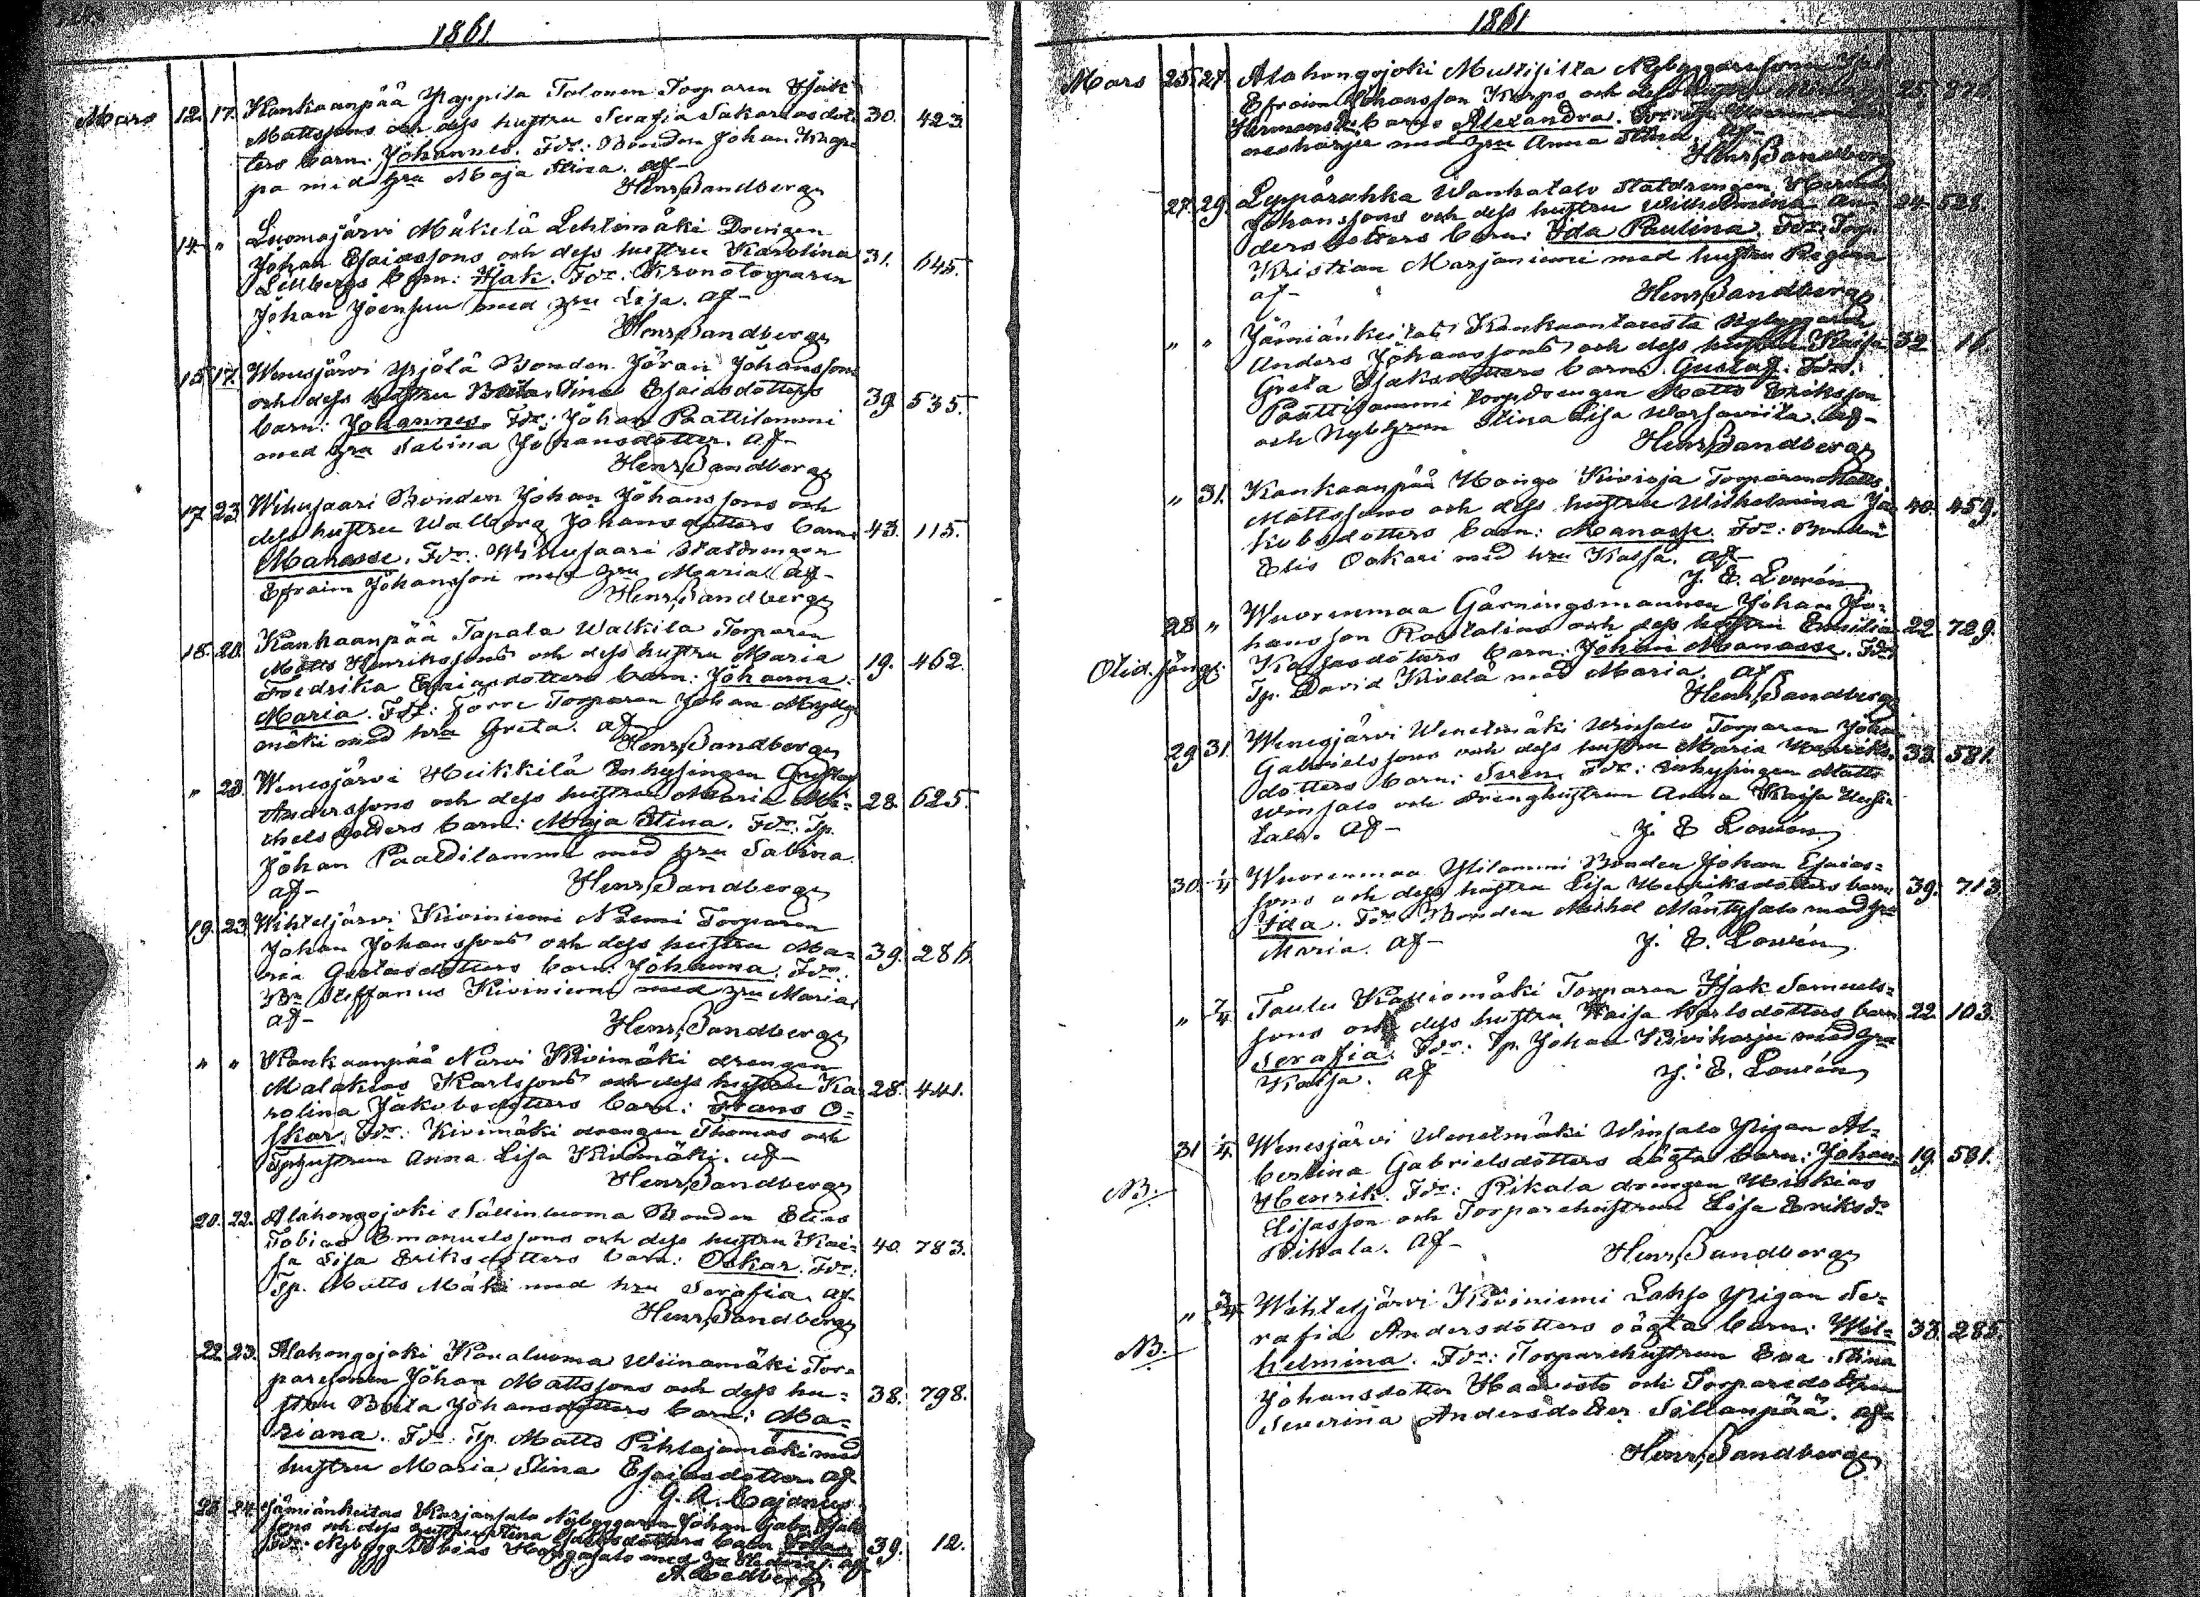 1861
Mars 12. 17. Kankaanpää Yröppilä Talonen Torparen Isak
Mattssons och dess hustru Serafia Sakariasdot- 30. 423.
ters barn: Johannes. Fdr: Bonden Johan Knap-
pa med hru Maja Stina. af-
Henr. Sandberg
14. " Luomajärvi Mäkelä Lehtimäki Drengen
Johan Esaiassons och dess hustru Karolina 31. 645.
Lillbergs barn: Isak. Fdr. Kronotorparen
Johan Joensuu med hru Lisa. af-
Henr. Sandberg
15 17. Wenesjärvi Yrjölä Bonden Jöran Johanssons
och dess hustru Beata Stina Esaiasdotters 39 535.
barn: Johannes. Fdr: Johan Paattilammi
med hru Sabina Johansdotter. af-
Henr. Sandberg
17 23 Wihusaari Bonden Johan Johanssons och
dess hustru Walborg Johansdotters barn 43. 115.
Manasse. Fdr: Wihusaari Statdrengen
Efraim Johansson med hru Maria af-
Henr. Sandberg
18. 20. Kankaanpää Tapala Walkila Torparen
Matts Henrikssons och dess hustru Maria 19. 462.
Fredrika Esaiasdotters barn: Johanna
Maria. Fdr: förre Torparen Johan Mylly-
mäki med hru Greta. af
Henr. Sandberg
" 23. Wenesjärvi Heikkilä Inhysingen Gustaf
Anderssons och dess hustru Maria Mi- 28. 625.
chelsdotters barn: Maja Stina. Fdr: Tp.
Johan Paattilammi med hru Sabina
af- Henr. Sandberg
19. 23. Wihteljärvi Kiviniemi Niemi Torparen
Johan Johanssons och dess hustru Ma- 39. 286.
ria Gustafsdotters barn: Johanna. Fdr.
Bn Steffanus Kiviniemi med hru Maria
af- Henr. Sandberg
" " Kankaanpää Narvi Kivimäki drengen
Malakias Karlssons och dess hustru Ka- 28. 441.
rolina Jakobsdotters barn: Frans O-
skar. Fdr: Kivimäki drengen Thomas och
Tphustrun Anna Lisa Kivimäki. af-
Henr. Sandberg
20. 22. Alahongojoki Sällinluoma Bonden Elias
Tobias Emanuelssons och dess hustru Kai- 40. 783.
sa Lisa Eriksdotters barn: Oskar. Fdr:
Tp. Matts Mäki med hru Serafia. af
Henr. Sandberg
22. 23. Alahongojoki Kanaluoma Wiinamäki Tor-
paresonen Johan Mattssons och dess hu- 38. 798.
stru Beata Johansdotters barn: Ma-
riana. Fdr: Tp. Matts Pihlajamäki med
hustru Maria Stina Esaiasdotter. af
G. A. Cajanus
23. 24. Jämiänkeitas Karjansalo Nybyggaren Johan Gabr. Isak-
sons och dess hustru Stina Isaksdotters barn
Fdr. Nybygg. Tobias Hongosalo med hr Hedvig. af 39. 12.
A. Cedberg
1861
Mars 25. 27. Alahongojoki Multisilta Nybyggaresonen
Efraim Johansson Karpo och dess hustru
Hermansdr. barn: Alexandra. Fdr: 25.
med hru Anna Stina. af-
Henr. Sandberg
27. 29. Leppärahka Wanhatalo Statdrengen Herman
Johanssons och dess hustru Wilhelmina An- 24. 528.
dersdotters barn: Ida Paulina. Fdr: Torp.
Kristian Marjaniemi med hustru Regina
af- Henr. Sandberg
" " Jämiänkeitas Kankaantausta Nybyggaren
Anders Johanssons och dess hustru Kaisa 32. 16.
Greta Isaksdotters barn: Gustaf. Fdr:
Paattilammi torpdrengen Matts Eriksson
och Nybhrun Stina Lisa Warsaviita. af-
Henr. Sandberg
" 31. Kankaanpää Hongo Kivioja Torparen Matts
Mattssons och dess hustru Wilhelmina Ja- 40. 459.
kobsdotters barn: Manasse. Fdr: Bonden
Elis Ookari med hru Kaisa. af-
J. E. Lowén
28 " Wuorenmaa Gärningsmannen Johan Jo-
hansson Rautalins och dess hustru Emilia 22. 729.
Kaisasdotters barn: Johan Manasse. Fdr:
Tp. David Kivelä med Maria. af
Henr. Sandberg
29 31. Wenesjärvi Wenelmäki Winsalo Torparen Johan
Gabrielssons och dess hustru Maria Henriks- 33. 581.
dotters barn: Seren. Fdr: Inhysingen Matts
Winsalo och drenghustrun Anna Kaisa
tala. af- J. E. Lowén
30. 1/4 Wuorenmaa Ylilammi Bonden Johan Esaias-
sons och dess hustru Lisa Henriksdotters barn 39. 713.
Ida. Fdr Bonden Mickel Mäntysalo med hru
Maria. af- J. E. Lowén
" 7/4 Taulu Kalliomäki Torparen Isak Samuels-
sons och dess hustru Kaisa Karlsdotters barn 22 103.
Serafia. Fdr: Tp. Johan Kiviharju med hru
Kaisa. af J. E. Lowén
31 1/4 Wenesjärvi Wenelmäki Winsalo Pigan Al-
bertina Gabrielsdotters oägta barn: Johan 19. 581.
NB. Henrik. Fdr: Rikala drengen Hiskias
Elisasson och Torparehustrun Lisa Eriksdr
Rikala. af- Henr. Sandberg
" 3/4 Wihteljärvi Kiviniemi Lahjo Pigan Se-
rafia Andersdotters oägta barn: Wil- 33. 285.
NB. helmina. Fdr: Torparehustrun Eva Stina
Johansdotter Haavisto och Torparedottren
Severina Andersdotter Sillanpää. af-
Henr. Sandberg